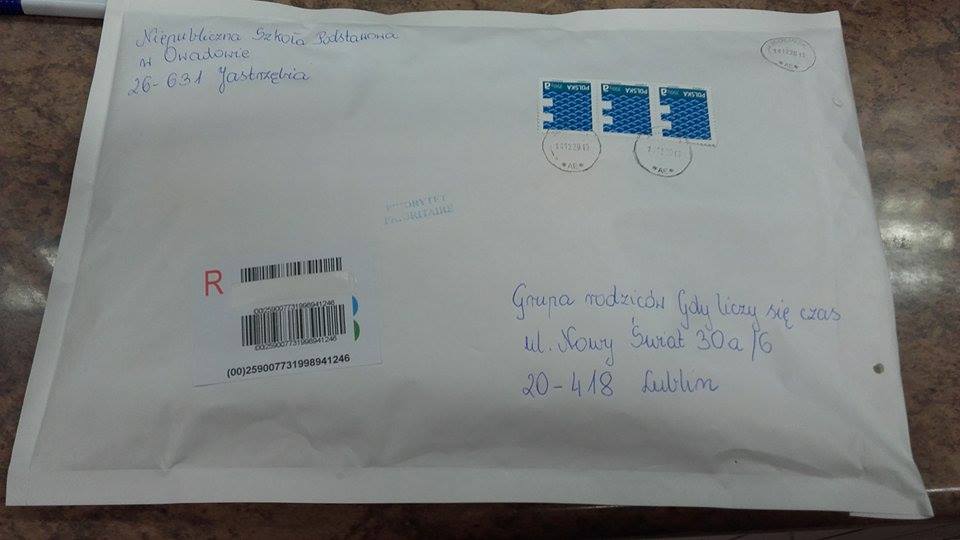 Niepubliczna Szkoła Podstawowa
w Owadowie
26-631 Jastrzębia
POLSKA A
POLSKA A
POLSKA A
PRIORYTET
PRIORITAIRE
R
(00)259007731998941246
(00)259007731998941246
(00)259007731998941246
Grupa rodziców Gdy liczy się czas
ul. Nowy Świat 30a/6
20-418 Lublin